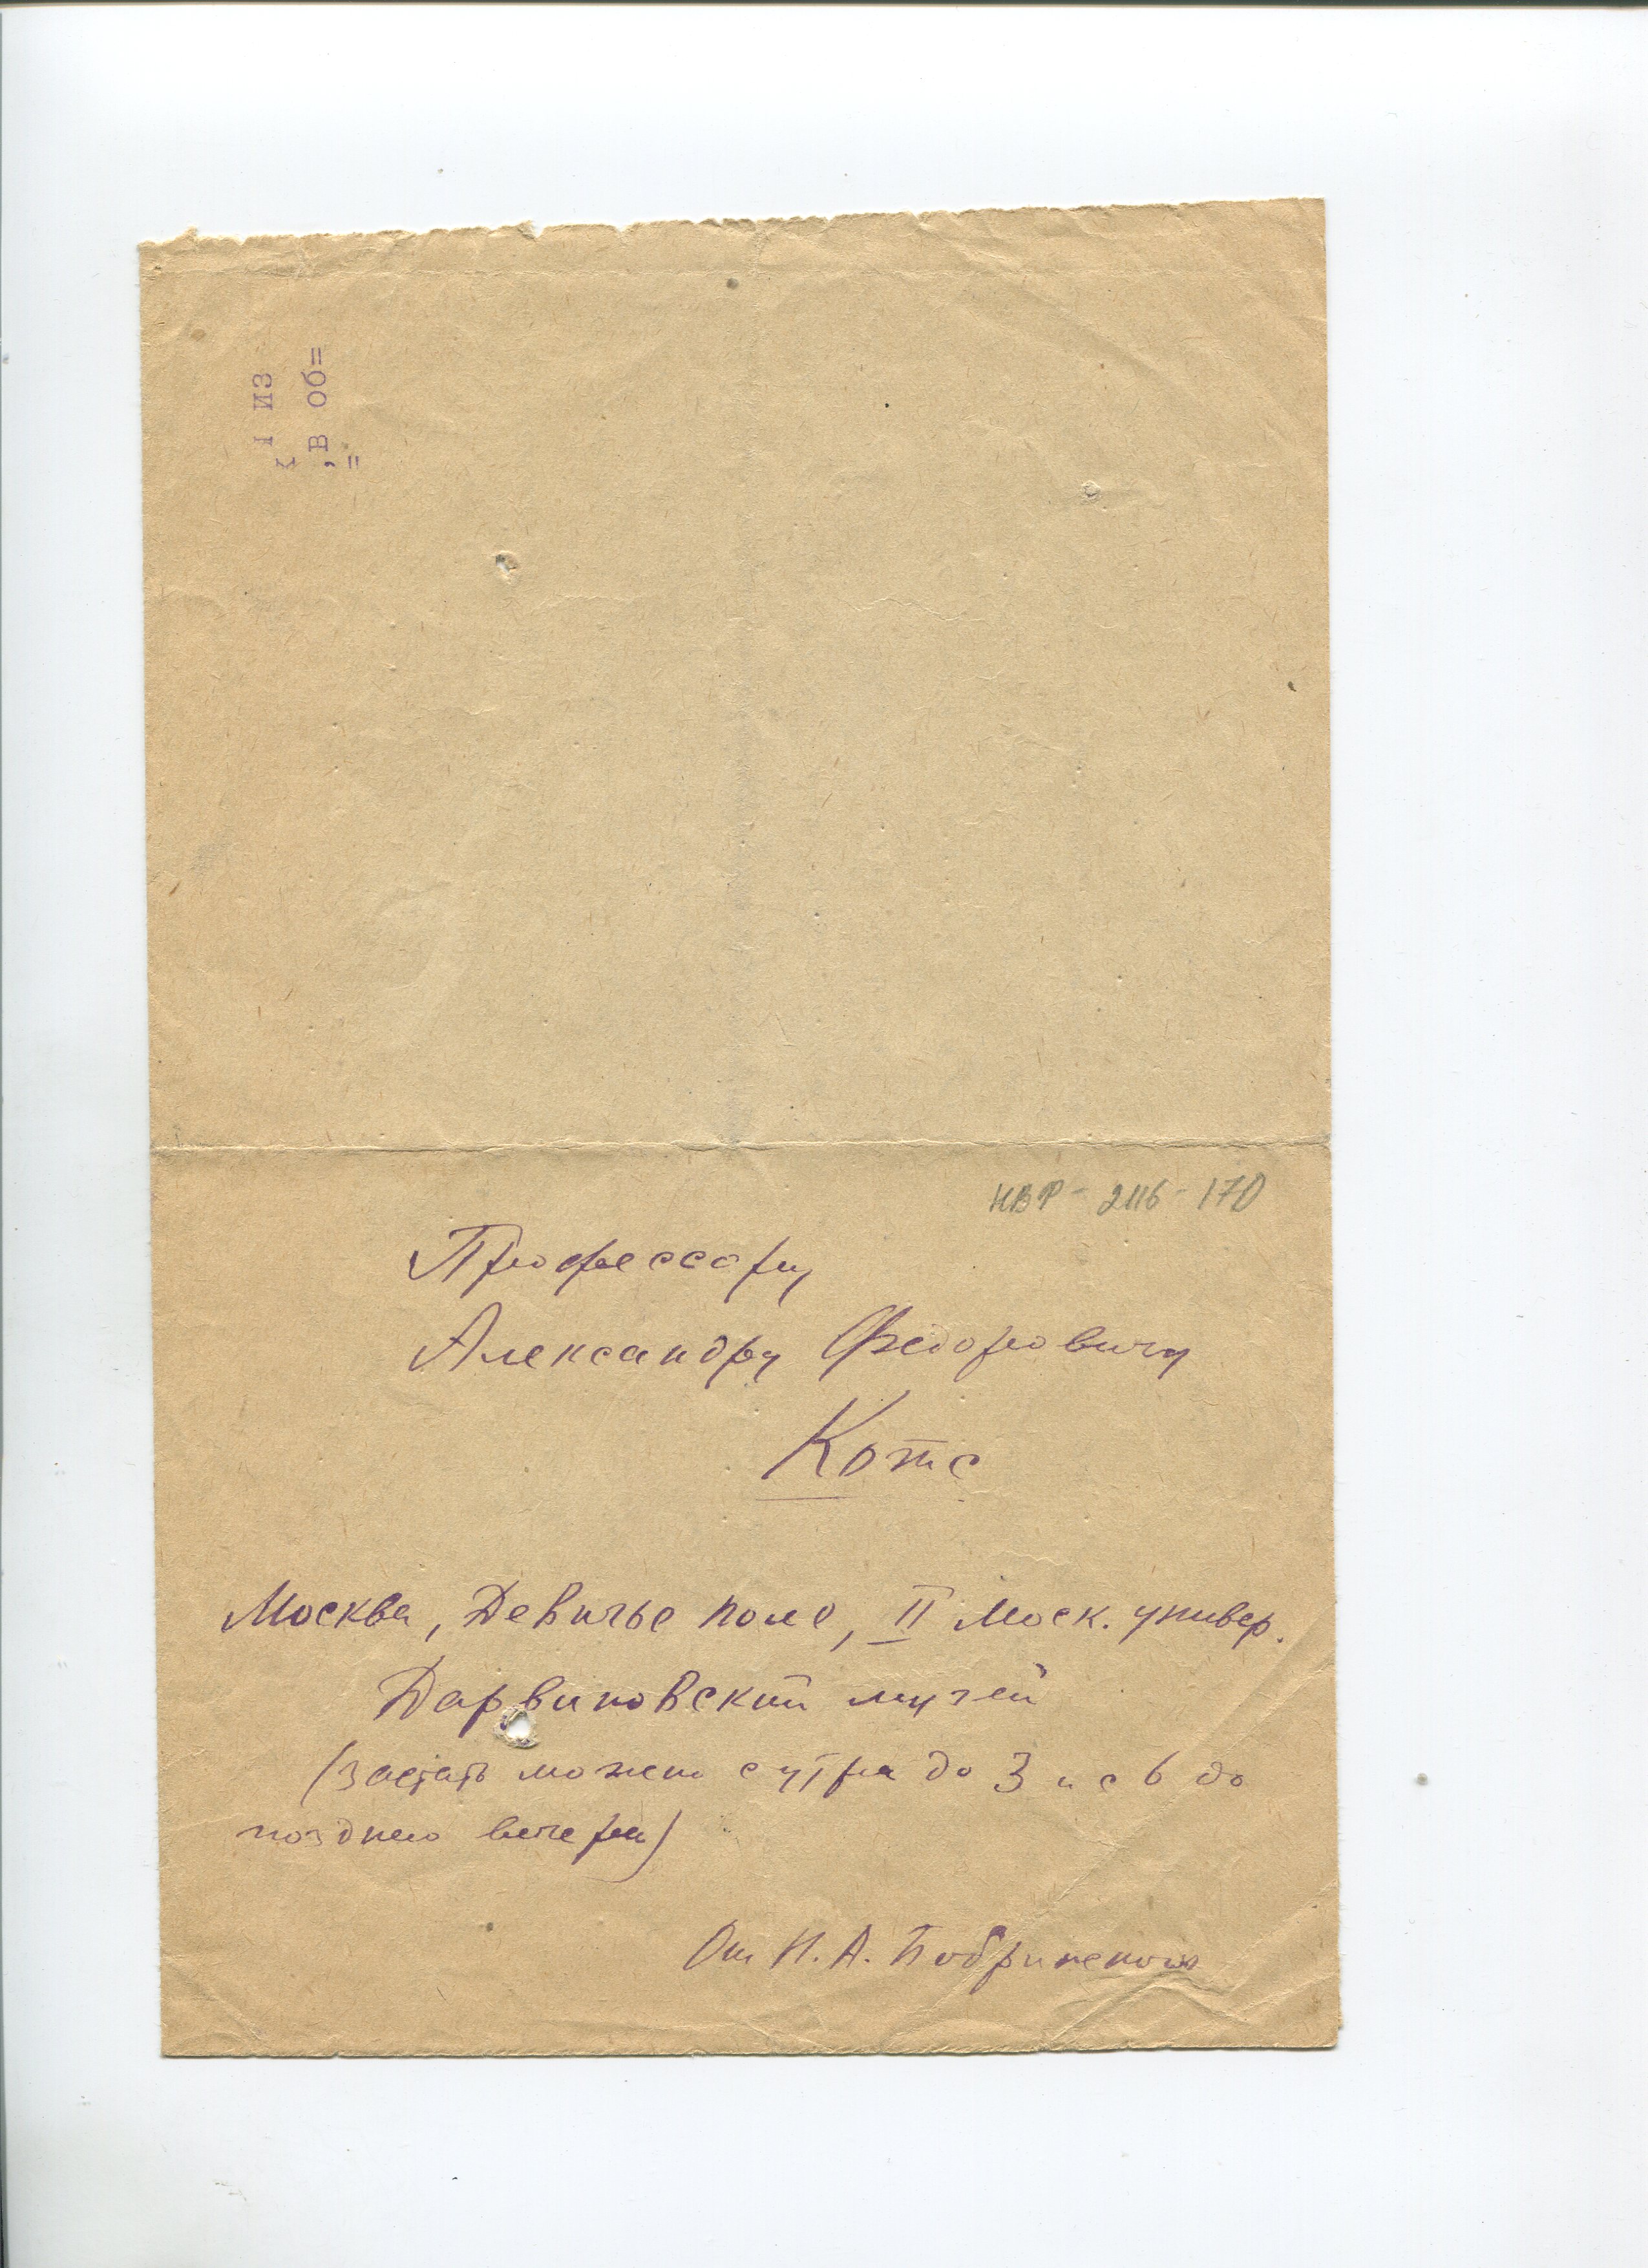 1 из
, в об=
=
НВФ - 2116 - 170
Профессору
Александру Федоровичу
Котс
Москва, Девичье поле, II Моск. универ.
Дарвиновский музей
(застать можно с утра до 3 и с 6 до
позднего вечера)
От Н. А. Бобринского